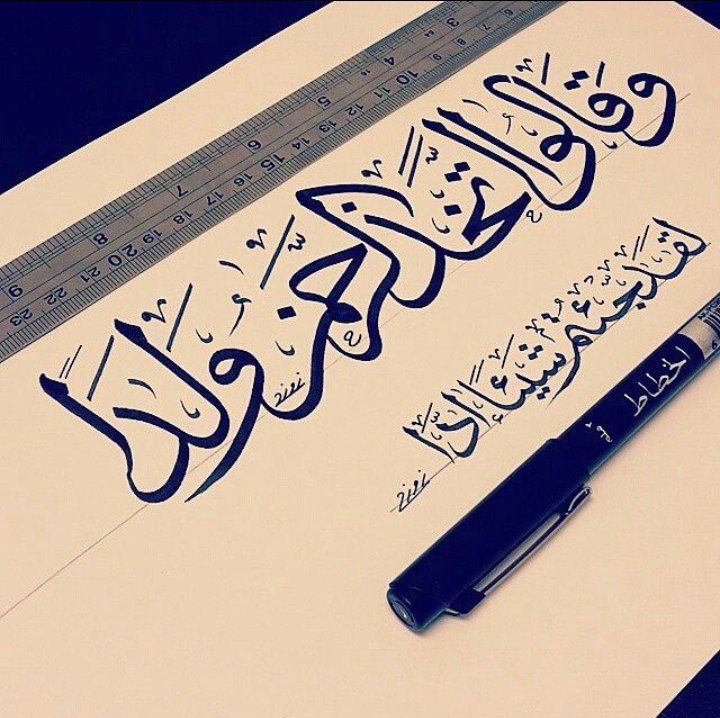 وقالوا اتخذ الرحمن ولدا
لقد جئتم شيئا إدا
الخطاط
3 4 5 6 7 8 9
10 11 12 13 14 15 16 17 18 19 20 21 22 23